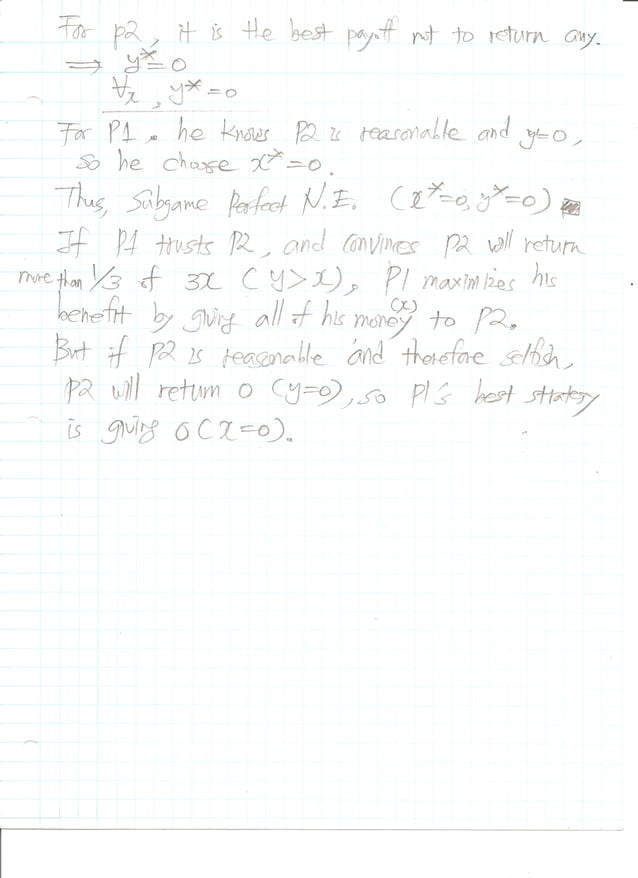 For p2, it is the best payoff not to return any.
⟹ y*=0
∀x, y*=0
For P1. he knows P2 is reasonable and y=0,
so he choose x*=0.
Thus, Subgame Perfect N.E. (x*=0, y*=0)
If P1 trusts P2, and convinces P2 will return
more than 1/3 of 3x (y>x), P1 maximizes his
benefit by giving all of his money (x) to P2.
But if P2 is reasonable and therefore selfish,
P2 will return 0 (y=0), so P1's best strategy
is giving 0 (x=0).